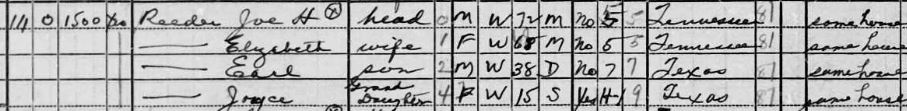 114 0 1500 No Reeder Joe H head 0 M W 72 M No 5 5 Tennessee 81 same house
— Elizabeth wife 1 F W 68 M No 5 5 Tennessee 81 same house
— Earl son 2 M W 38 D No 7 7 Texas 81 same house
— Joyce Grand Daughter 4 F W 15 S Yes H-1 9 Texas 81 same house